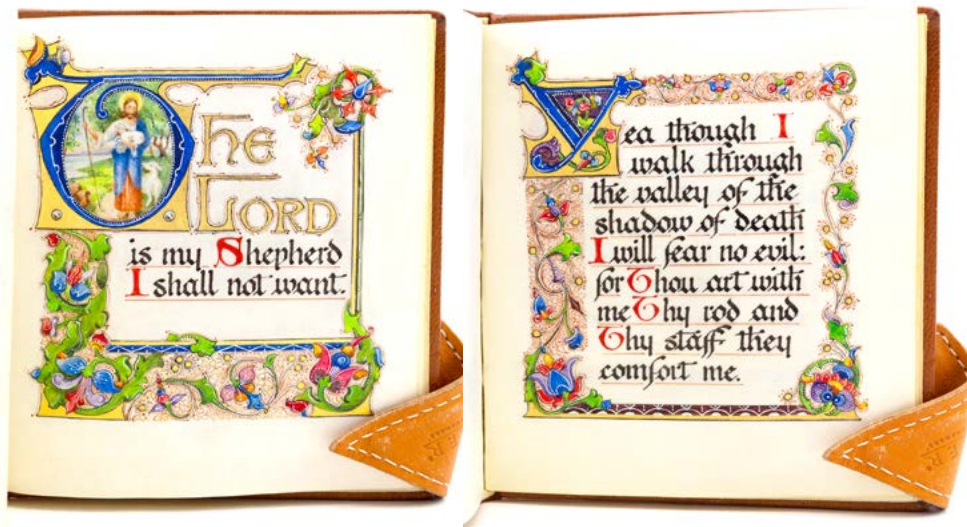 The
Lord
is my Shepherd
I shall not want.
Yea though I
walk through
the valley of the
shadow of death
I will fear no evil:
for Thou art with
me Thy rod and
Thy staff they
comfort me.